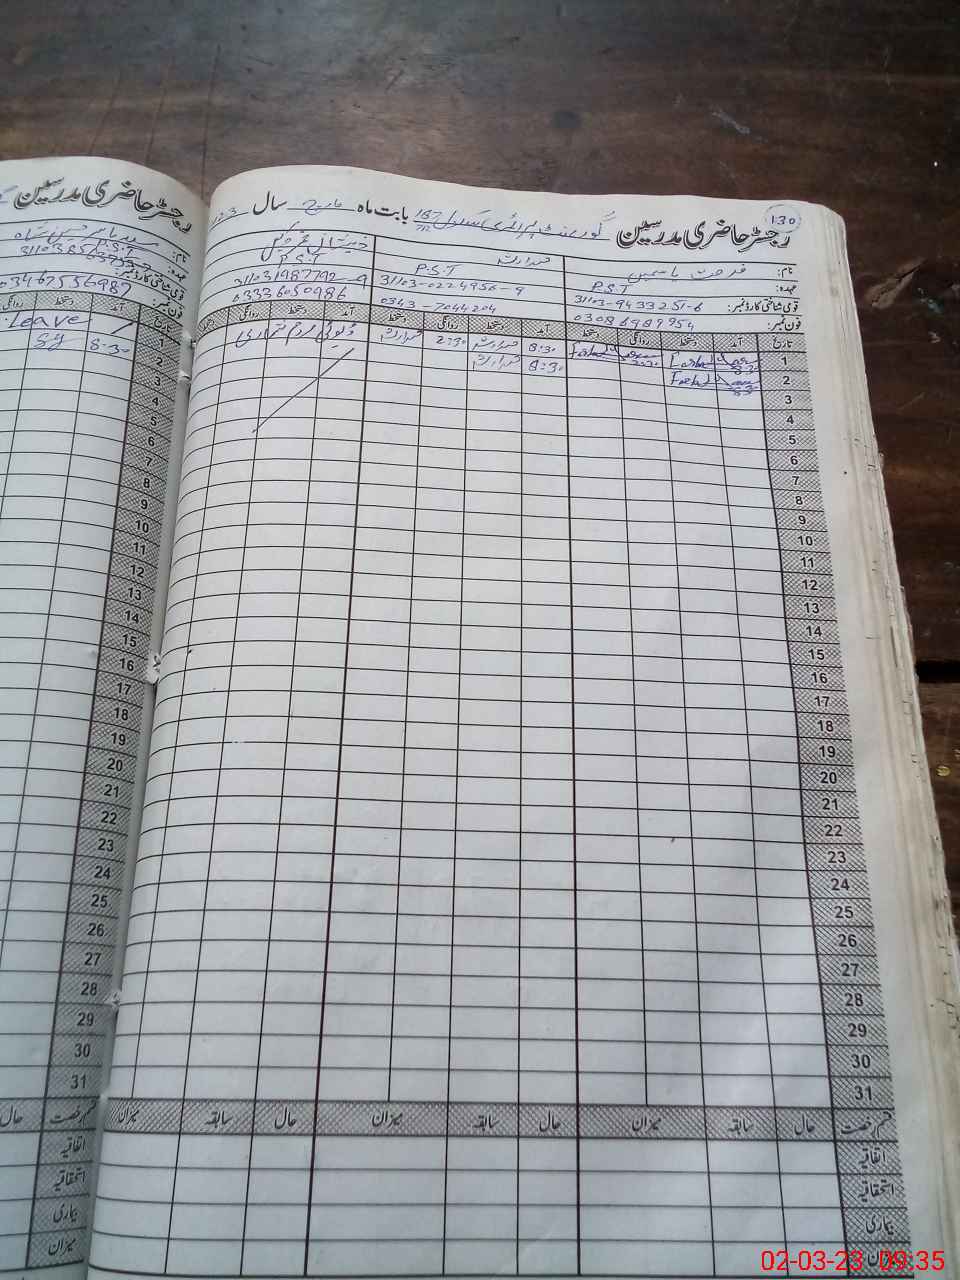 130
رجسٹر حاضری مدرسین گورنمنٹ پرائمری سکول 167 بابت ماہ مارچ سال
نام: فرحت یاسمین
عہدہ: P.S.T P.S.T P.S.T
قومی شناختی کارڈ نمبر: 31103-9433251-6 31103-0224956-9 311031987792-9
فون نمبر: 03086989954 0343-7044204 03336050986
تاریخ آمد دستخط روانگی دستخط آمد دستخط روانگی دستخط آمد دستخط روانگی دستخط
1 8:30 2:30 8:30 2:30 ڈیوٹی مردم شماری
2 8:30 8:30
3
4
5
6
7
8
9
10
11
12
13
14
15
16
17
18
19
20
21
22
23
24
25
26
27
28
29
30
31
قسم رخصت حال سابقہ میزان حال سابقہ میزان حال سابقہ میزان
اتفاقیہ
استحقاقیہ
بیماری
میزان
رجسٹر حاضری مدرسین
نام:
عہدہ: P.S.T
قومی شناختی کارڈ نمبر:
فون نمبر: 03467556987
تاریخ آمد دستخط روانگی
1 Leave
2 8:30
3
4
5
6
7
8
9
10
11
12
13
14
15
16
17
18
19
20
21
22
23
24
25
26
27
28
29
30
31
قسم رخصت حال
اتفاقیہ
استحقاقیہ
بیماری
میزان
02-03-23 09:35